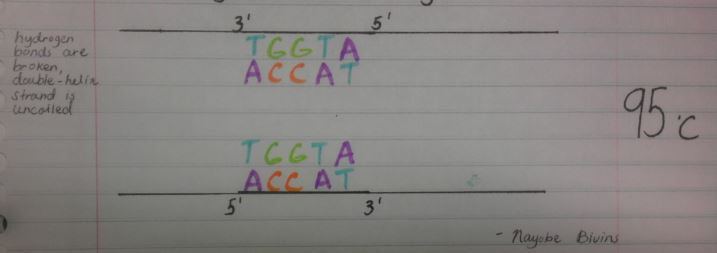 3' 5'
hydrogen
bonds are
broken,
double-helix
strand is
uncoiled
TGGTA
ACCAT
95°C
TGGTA
ACCAT
5' 3'
- Nayobe Bivins